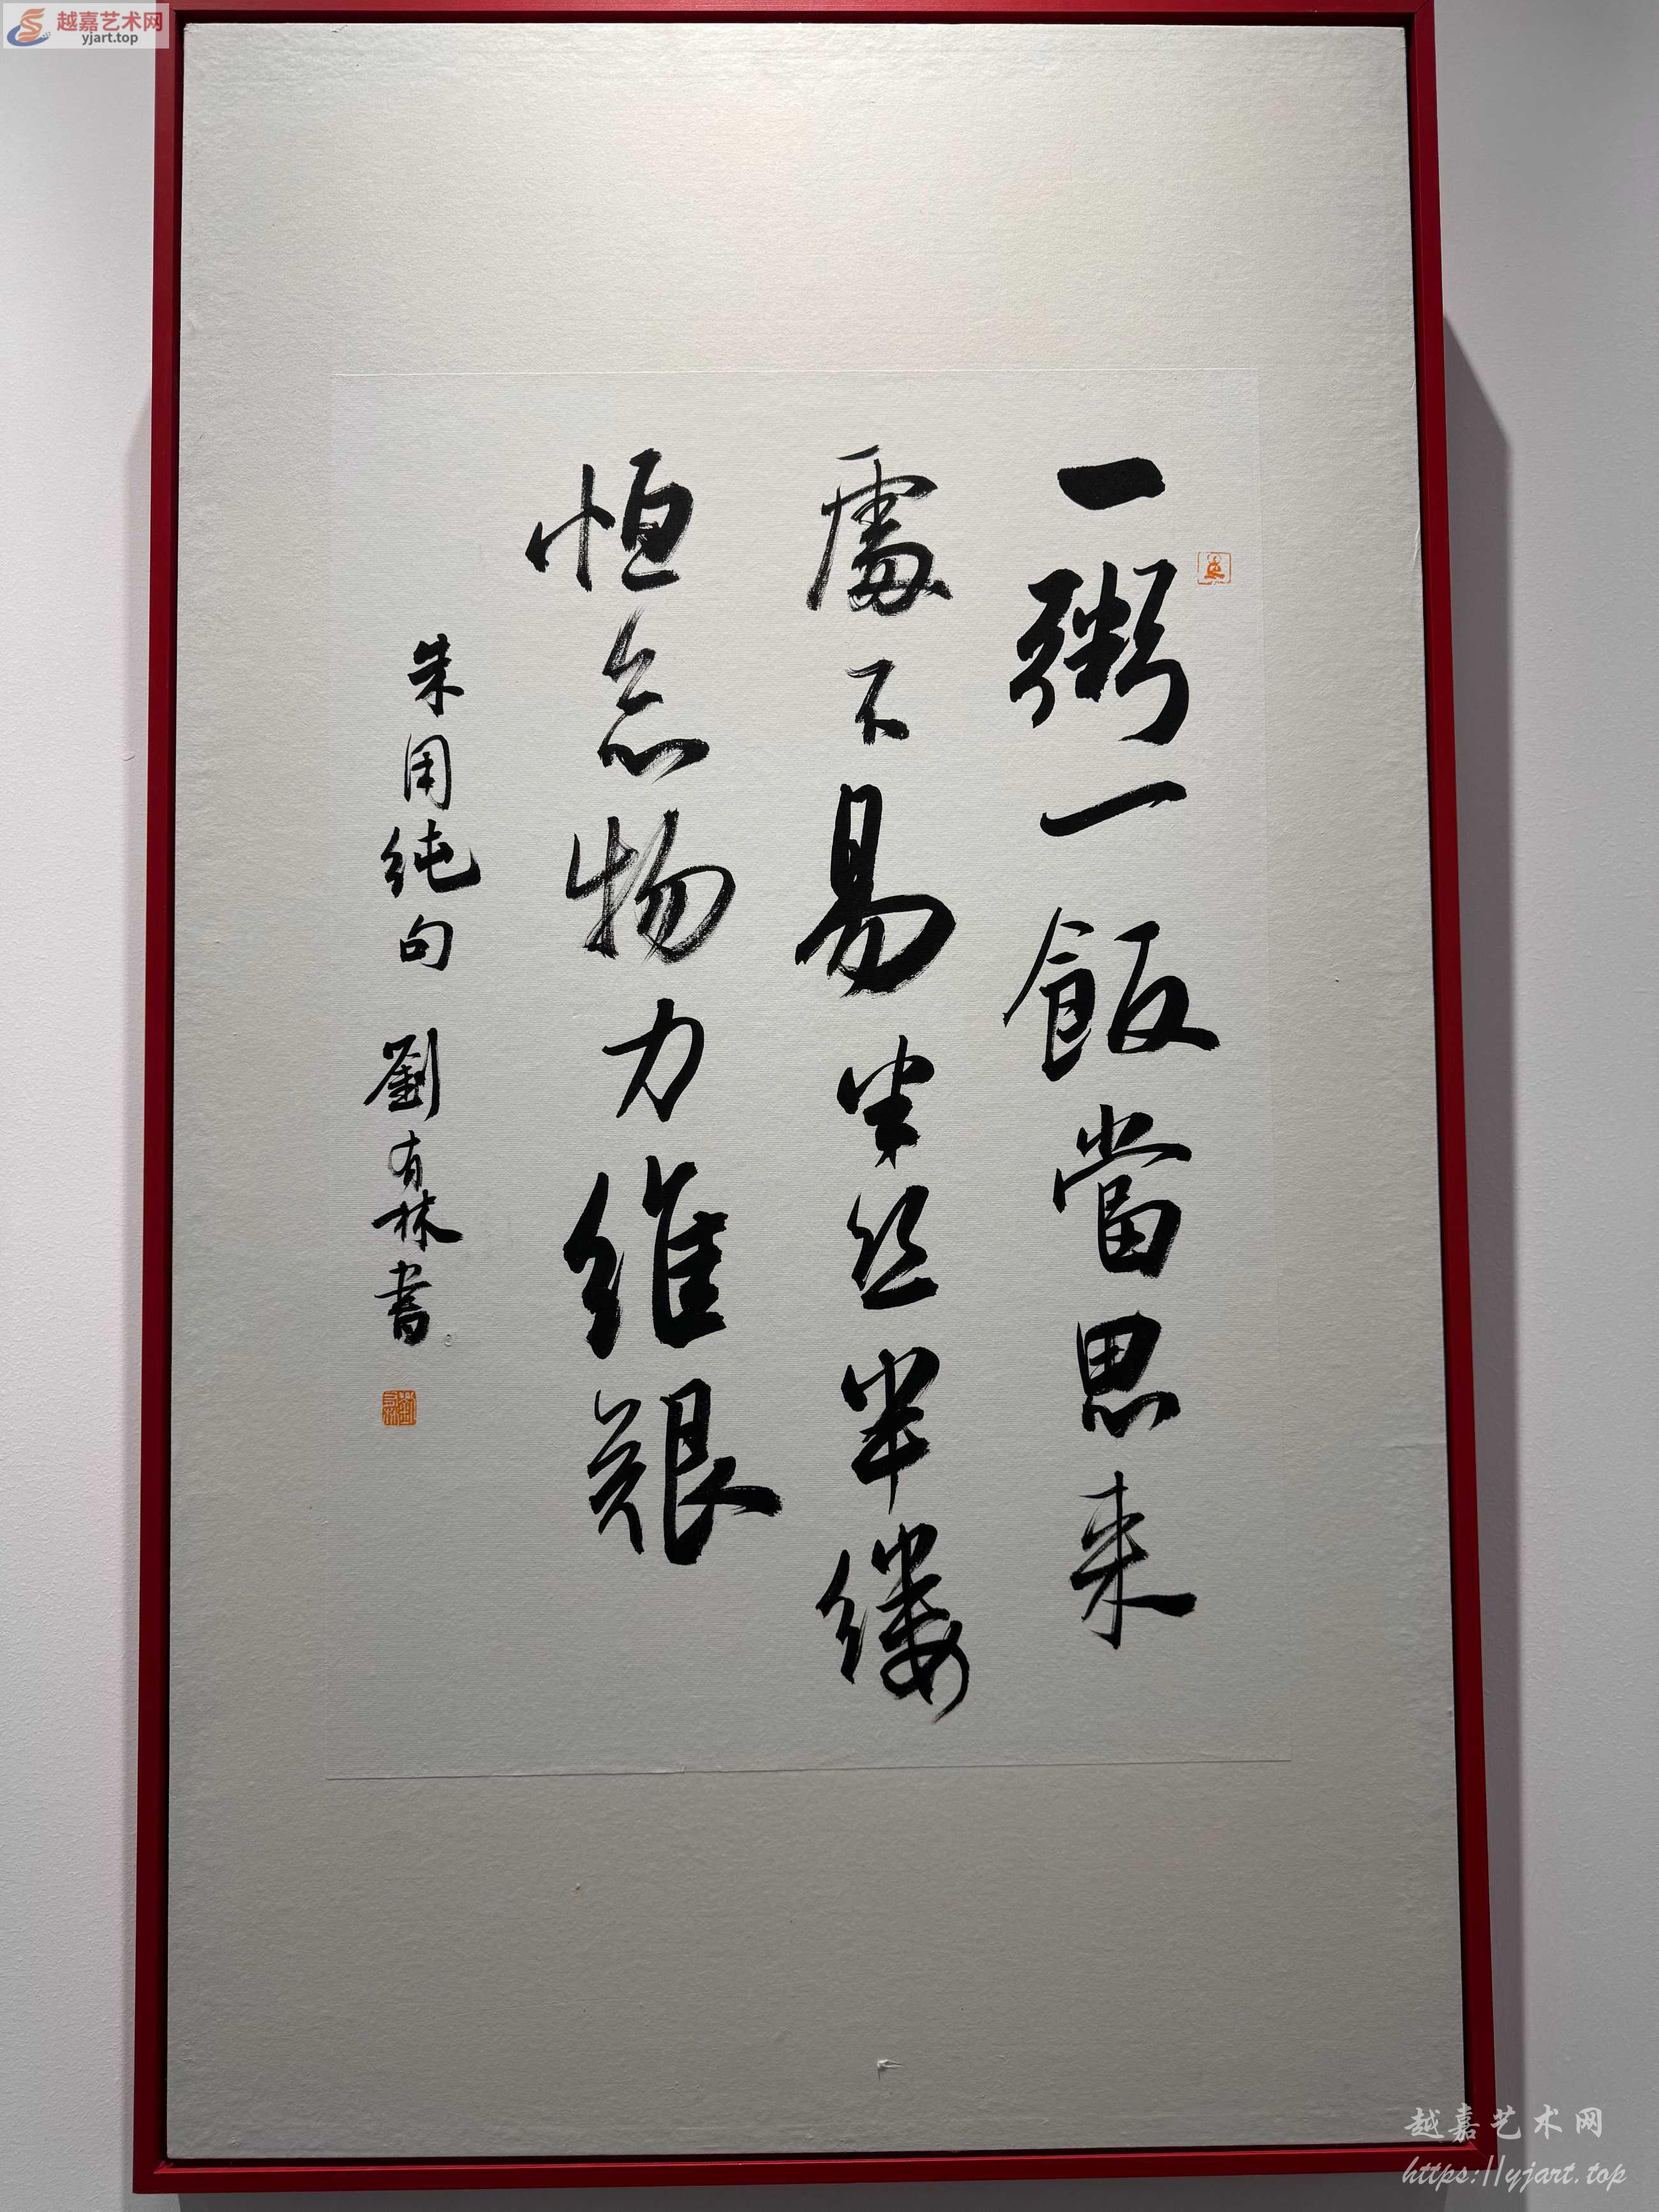 越嘉艺术网
yjart.top
一粥一飯當思来
處不易半丝半缕
恒念物力維艱
朱用纯句 劉有林書
越嘉艺术网
https://yjart.top